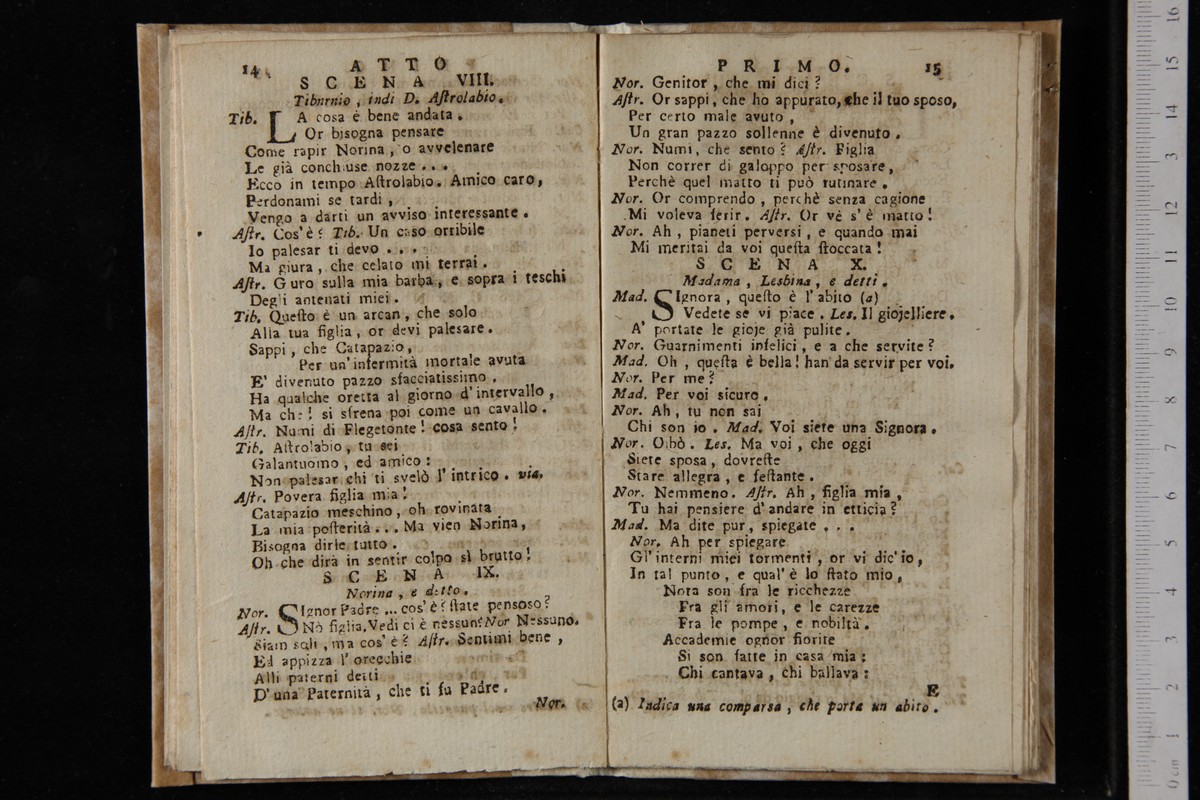 14 ATTO
SCENA VIII.
Tiburnio , indi D. Aſtrolabio.
Tib. LA cosa è bene andata .
Or bisogna pensare
Come rapir Norina , o avvelenare
Le già conchiuse nozze . . .
Ecco in tempo Aſtrolabio. Amico caro,
Perdonami se tardi ,
Vengo a darti un avviso interessante .
Aſtr. Cos' è ? Tib. Un caso orribile
Io palesar ti devo . . .
Ma giura , che celato mi terrai .
Aſtr. Guro sulla mia barba , e sopra i teschi
Degli antenati miei .
Tib. Queſto è un arcan , che solo
Alla tua figlia , or devi palesare .
Sappi , che Catapazio ,
Per un' infermità mortale avuta
E' divenuto pazzo sfacciatissimo ,
Ha qualche oretta al giorno d' intervallo ,
Ma che ! si sfrena poi come un cavallo .
Aſtr. Numi di Flegetonte ! cosa sento !
Tib. Aſtrolabio , tu sei
Galantuomo , ed amico :
Non palesar chi ti svelò l' intrico . via.
Aſtr. Povera figlia mia !
Catapazio meschino , oh rovinata
La mia poſterità . . . Ma vien Norina ,
Bisogna dirle tutto .
Oh che dirà in sentir colpo sì brutto !
SCENA IX.
Norina , e detto .
Nor. SIgnor Padre ... cos' è ? ſtate pensoso ?
Aſtr. Nò figlia. Vedi ci è nessun? Nor Nessuno.
Siam soli , ma cos' è ? Aſtr. Sentimi bene ,
Ed appizza l' orecchie
Alli paterni detti
D' una Paternità , che ti fu Padre .
Nor.
PRIMO. 15
Nor. Genitor , che mi dici ?
Aſtr. Or sappi , che ho appurato, che il tuo sposo,
Per certo male avuto ,
Un gran pazzo sollenne è divenuto .
Nor. Numi, che sento ? Aſtr. Figlia
Non correr di galoppo per sposare ,
Perchè quel matto ti può rutinare .
Nor. Or comprendo , perchè senza cagione
Mi voleva ferir . Aſtr. Or vè s' è matto !
Nor. Ah , pianeti perversi , e quando mai
Mi meritai da voi queſta ſtoccata !
SCENA X.
Madama , Lesbina , e detti .
Mad. SIgnora , queſto è l' abito (a)
Vedete se vi piace . Les. Il giojelliere ,
A' portate le gioje già pulite .
Nor. Guarnimenti infelici , e a che servite ?
Mad. Oh , queſta è bella ! han da servir per voi.
Nor. Per me ?
Mad. Per voi sicuro ,
Nor. Ah , tu non sai
Chi son io . Mad. Voi siete una Signora .
Nor. Oibò . Les. Ma voi , che oggi
Siete sposa , dovreſte
Stare allegra , e feſtante .
Nor. Nemmeno. Aſtr. Ah , figlia mia ,
Tu hai pensiere d' andare in etticia ?
Mad. Ma dite pur , spiegate . . .
Nor. Ah per spiegare
Gl' interni miei tormenti , or vi dic' io ,
In tal punto , e qual' è lo ſtato mio ,
Nota son fra le ricchezze
Fra gli amori , e le carezze
Fra le pompe , e nobiltà .
Accademie ognor fiorite
Si son fatte in casa mia :
Chi cantava , chi ballava :
E
(a) Indica una comparsa , che porta un abito .
16
15
14
3
12
11
10
9
8
7
6
5
4
3
2
1
0 cm